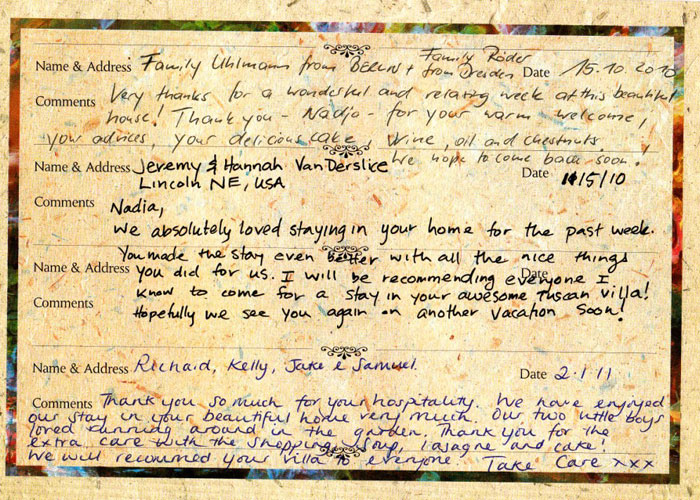 Family Röder
Name & Address Family Uhlmann from Berlin + from Dresden Date 15.10.2010
Comments Very thanks for a wonderful and relaxing week at this beautiful
house! Thank you - Nadja - for your warm welcome,
your advices, your delicious cake, wine, oil and chestnuts.
We hope to come back soon!
Name & Address Jeremy & Hannah VanDerslice Date 11/15/10
Lincoln NE, USA
Comments Nadia,
We absolutely loved staying in your home for the past week.
You made the stay even better with all the nice things
Name & Address you did for us. I will be recommending everyone I Date
know to come for a stay in your awesome Tuscan villa!
Comments Hopefully we see you again on another vacation soon!
Name & Address Richard, Kelly, Jake & Samuel. Date 2.1.11
Comments Thank you so much for your hospitality. We have enjoyed
our stay in your beautiful home very much. Our two little boys
loved running around in the garden. Thank you for the
extra care with the shopping, soup, lasagne and cake!
We will recommend your villa to everyone. Take Care xxx